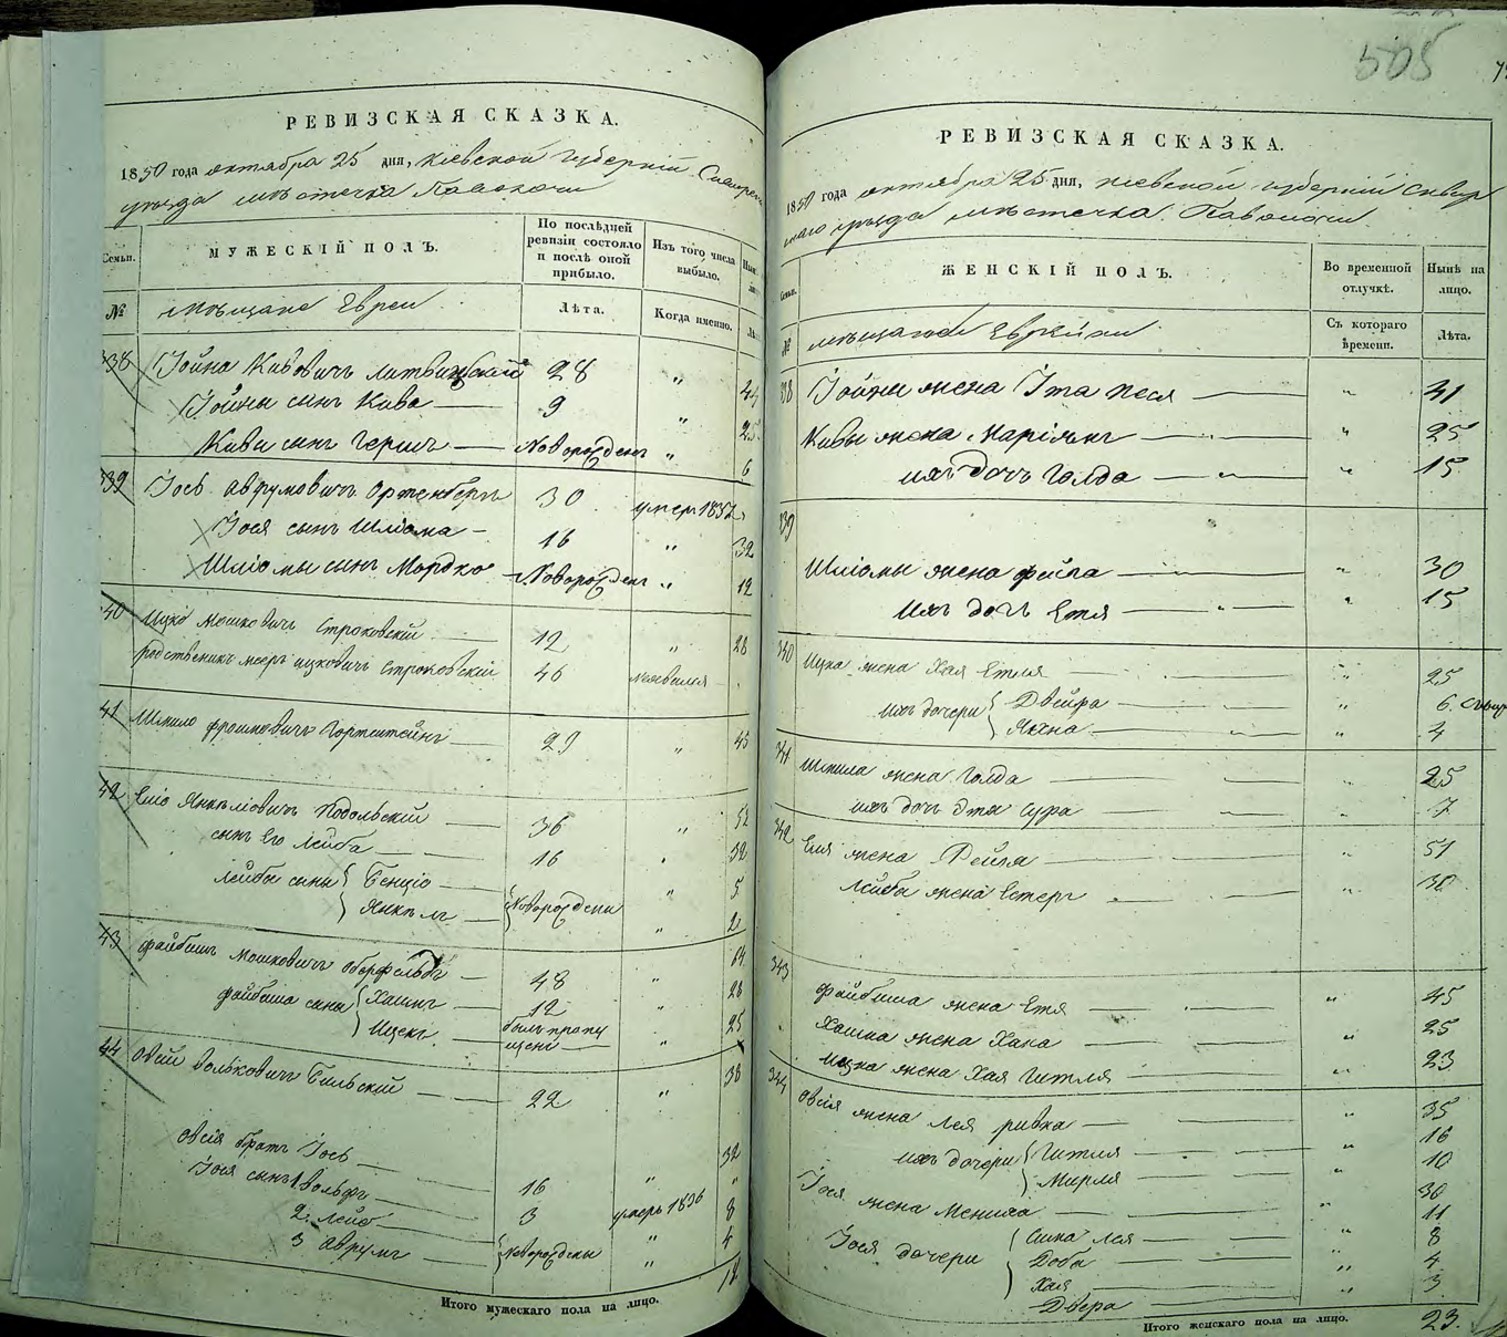 РЕВИЗСКАЯ СКАЗКА.
1850 года октября 25 дня, Кіевской Губерніи Сквирск
уезда местечка Паволочи
Семьи.
МУЖЕСКІЙ ПОЛЪ.
По послѣдней ревизіи состояло и послѣ оной прибыло.
Изъ того числа выбыло.
№
мещане Евреи
Лѣта.
Когда именно.
338 Іойна Кивовичъ Литвинскій 28 " 44
Іойны сынъ Кива 9 " 25
Кивы сынъ Гершъ Новорожденъ " 6
339 Іось Аврумовичъ Ортенбергъ 30 умер 1837
Іося сынъ Шліома 16 " 32
Шліомы сынъ Мордко Новорожденъ " 12
40 Ицко Мошковичъ Строковскій 12 " 28
родственикъ Мееръ Ицковичъ Строковскій 46 неявился
41 Шмило Фроимовичъ 29 " 45
42 Еліо Янкеліовичъ Подольскій 36 " 52
сынъ Его Лейба 16 " 32
Лейбы сыны Бенціо Новорождены " 5
Янкель " 2
43 Файбишъ Мошковичъ Оберфельдъ 48 " 64
Файбиша сыны Хаимъ 12 " 28
Ицекъ былъ пропущенъ " 25
44 Овсій Вольковичъ Бильскій 22 " 38
Овсія братъ Іось 16 " 32
Іося сынъ 1 Вольфъ 3 умеръ 1836 "
2. Лейб Новорождены " 8
3 Аврумъ " 4
Итого мужескаго пола на лицо. 18
505
РЕВИЗСКАЯ СКАЗКА.
1850 года октября 25 дня, Кіевской губерніи Сквир
скаго уезда местечка Паволочи
Семьи.
ЖЕНСКІЙ ПОЛЪ.
Во временной отлучкѣ.
Нынѣ на лицо.
№
мещанки Еврейки
Съ котораго времени.
Лѣта.
338 Іойны жена Ита Песя " 41
Кивы жена Маріямъ " 25
ихъ дочь Голда " 15
339
Шліомы жена Фейга " 30
Ихъ дочь Етя " 15
340 Ицка жена Хая Етля " 25
ихъ дочери Двейра " 6
Яхна " 4
341 Шмила жена Голда " 25
ихъ дочь Эта Сура " 7
342 Еля жена Рейзя " 51
Лейба жена Естеръ " 30
343 Файбиша жена Етя " 45
Хаима жена Хана " 25
Ицка жена Хая Гитля " 23
344 Овсія жена Лея Ривка " 35
ихъ дочери Гитля " 16
Мирля " 10
Іося жена Мениха " 30
Іося дочери Сима Лея " 11
Доба " 8
Хая " 4
Двера " 3
Итого женскаго пола на лицо. 23.